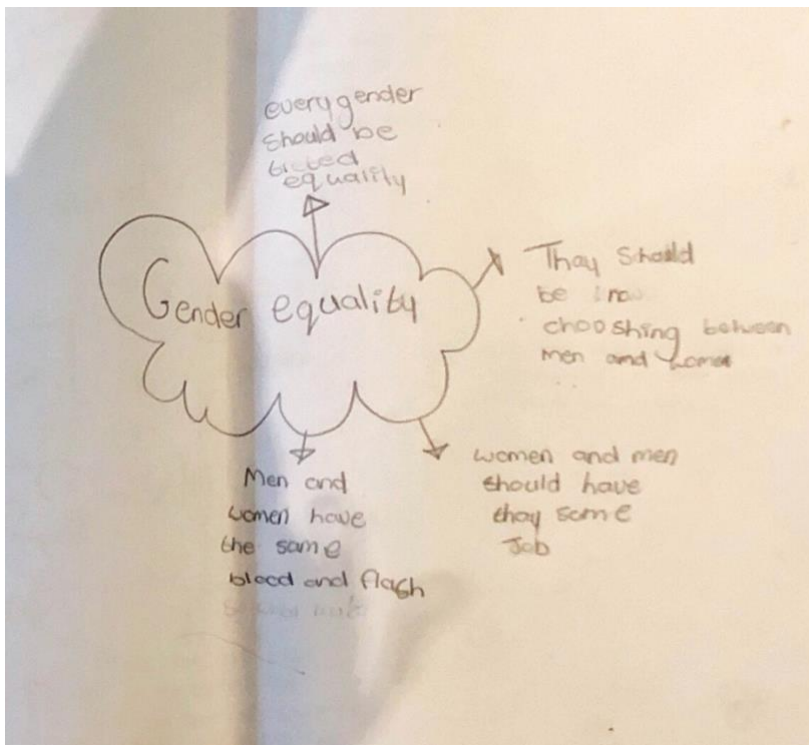 every gender
should be
equality
Gender equality
Thay should
be no
chooshing between
men and women
women and men
should have
thay same
Job
Men and
women have
the same
blood and flash